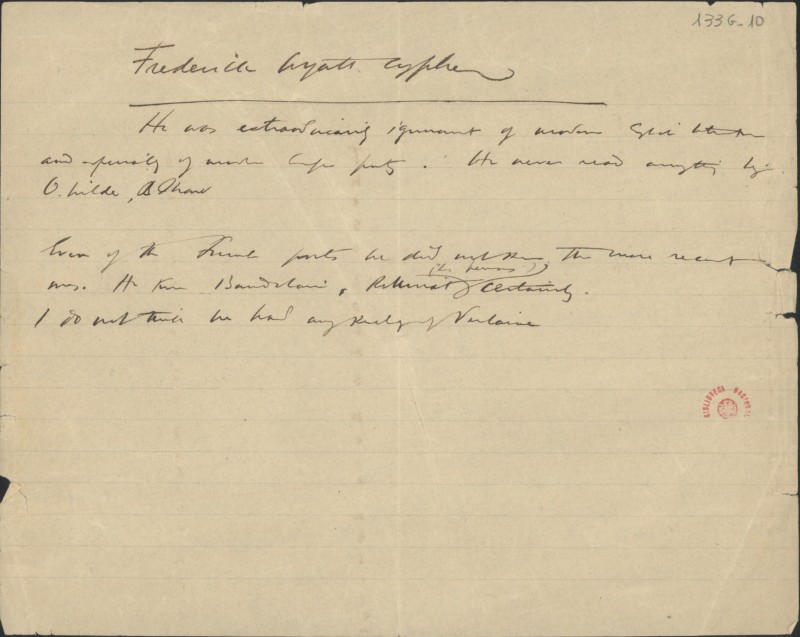 133G-10
Frederick Wyatt. Cypher
He was extraordinarily ignorant of modern English literature
and especially of modern English poetry. He never read anything by
O. Wilde, B. Shaw
Even of the French poets he did not know the more recent
(his poems?)
ones. He knew Baudelaire, Rollinat certainly.
I do not think he had any knowledge of Verlaine
BIBLIOTECA NACIONAL